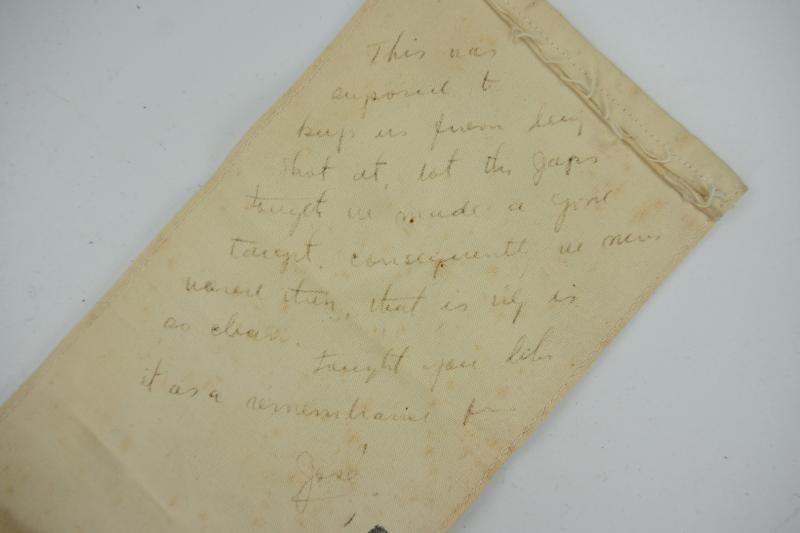 This was
suposed to
keep us from being
shot at, but the Japs
tought we made a good
target. consequently we never
wored them, that is why is
so clean.
tought you like
it as a remembrance from
José